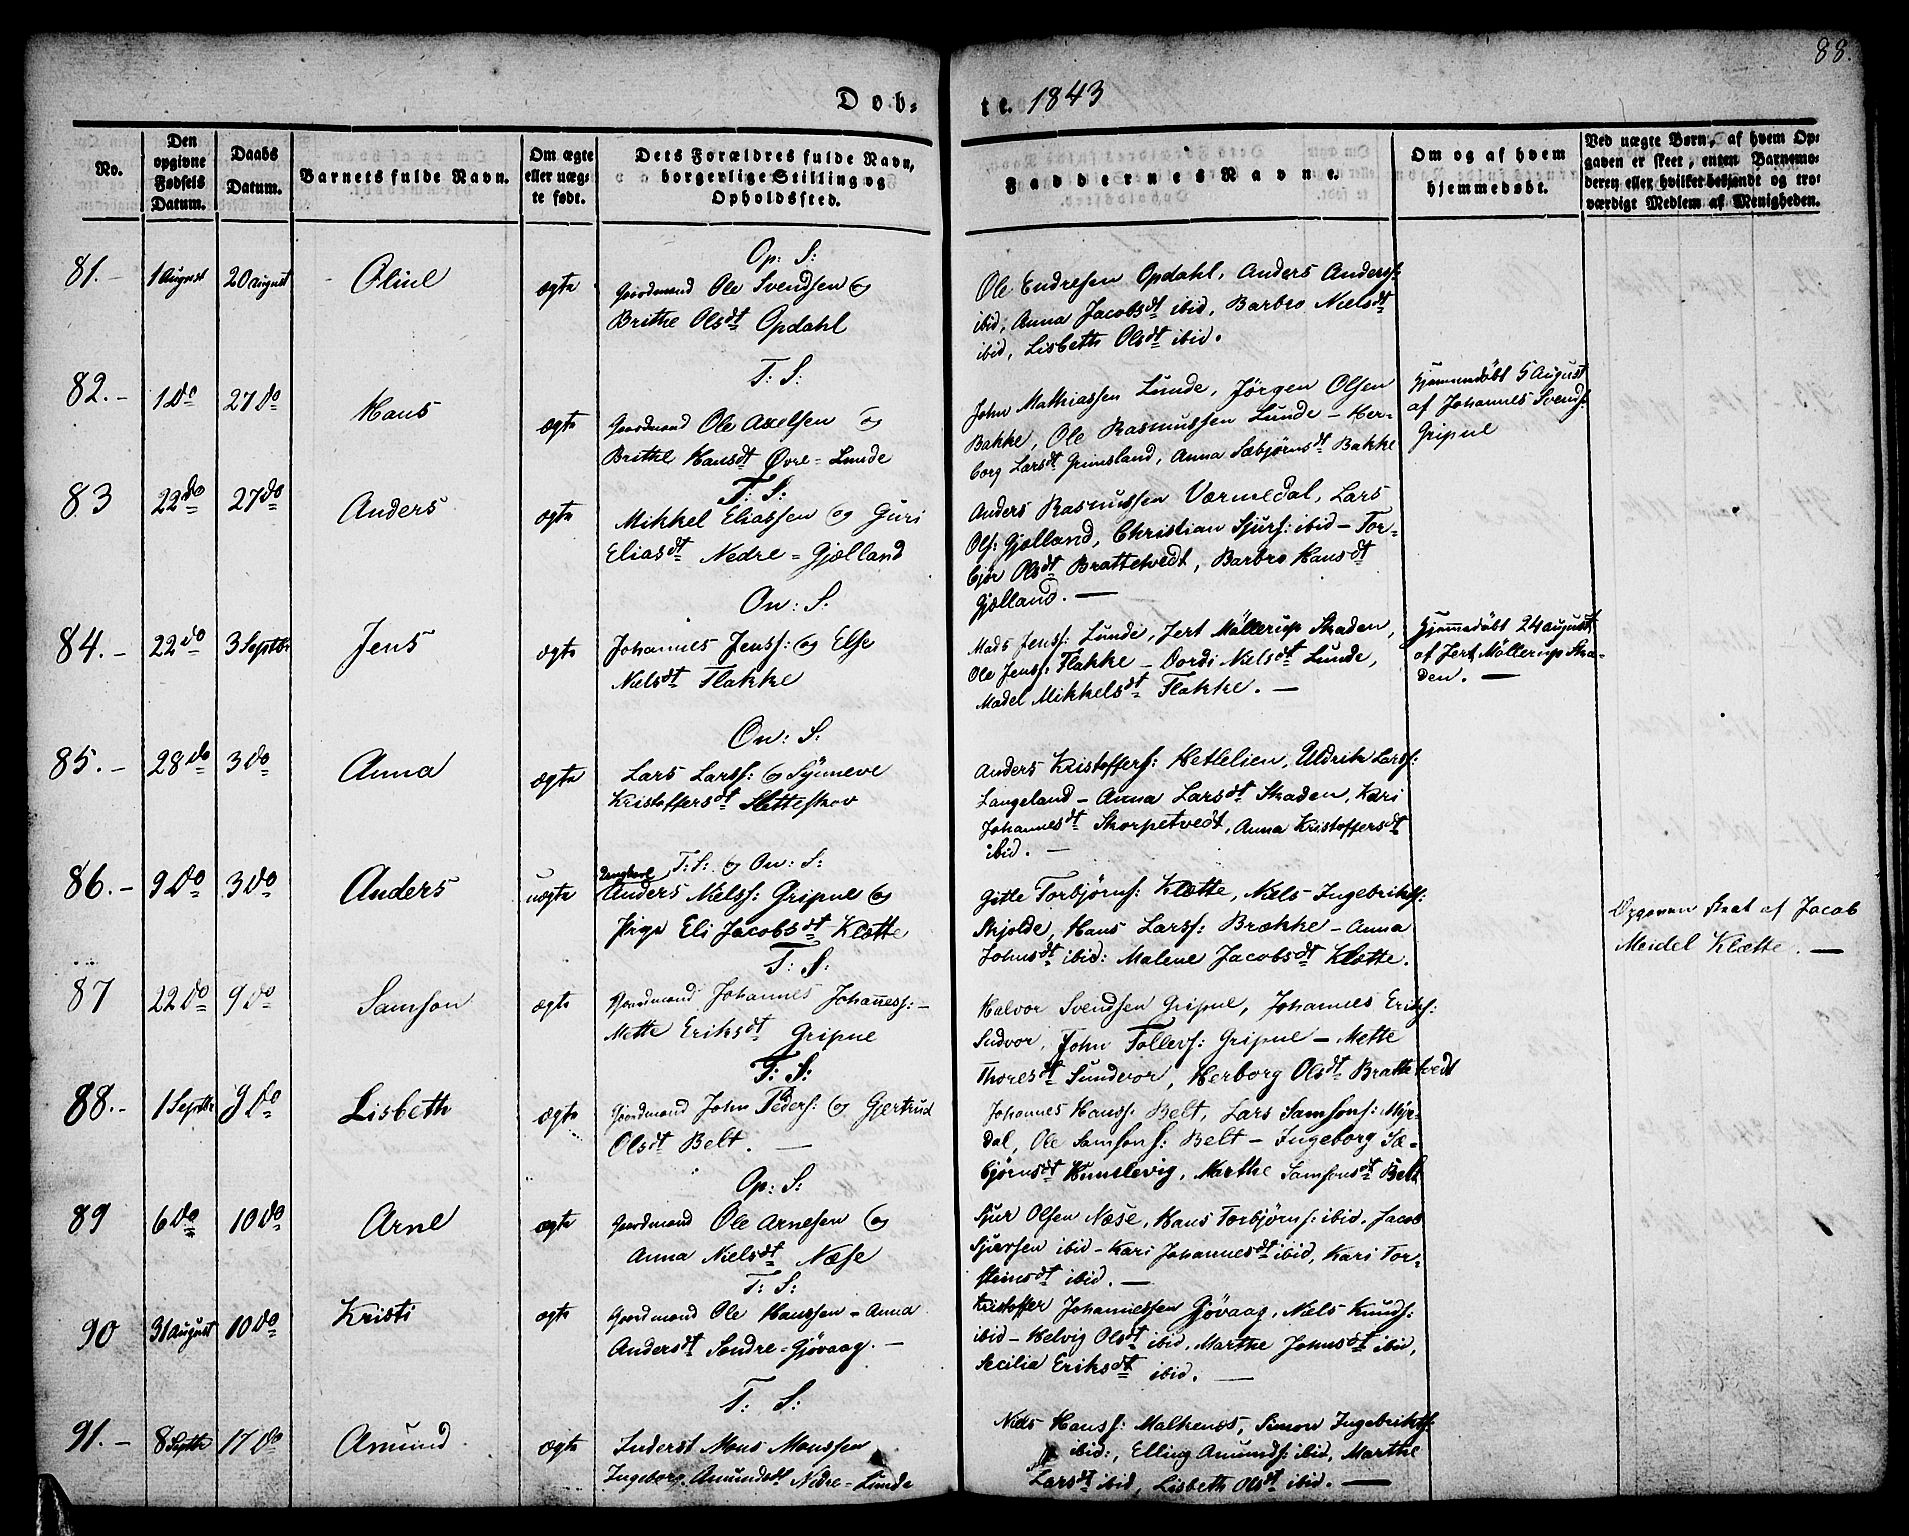 88.
Døb-
te. 1843
No.
Den
opgivne
Fødsels
Datum.
Daabs
Datum.
Barnets fulde Navn.
Om ægte
eller uæg-
te født.
Dets Forældres fulde Navn,
borgerlige Stilling og
Opholdssted.
Faddernes Navne.
Om og af hvem
hjemmedøbt.
Ved uægte Børn, af hvem Op-
gaven er skeet, enten Barnemo-
deren eller hvilket bekjendt og tro-
værdigt Medlem af Menigheden.
81.- 1 August 20 august Oline ægte
Op: S:
Gaardmand Ole Svendsen og
Brithe Olsdt Opdahl
Ole Endresen Opdahl, Anders Anderss:
ibid, Anna Jacobsdt ibid, Barbro Nielsdt
ibid, Lisbeth Olsdt ibid.
82.- 1 do 27 do Hans ægte
T: S:
Gaardmand Ole Axelsen og
Brithe Hansdt Øvre-Lunde
John Mathiassen Lunde, Jörgen Olsen
Bakke, Ole Rasmussen Lunde - Her-
borg Larsdt Grimsland, Anna Sæbjørnsdt Bakke
Hjemmedöbt 5 August
af Johannes Svends:
Gripne
83 22 do 27 do Anders ægte
T: S:
Mikkel Eliassen og Guri
Eliasdt Nedre=Gjælland
Anders Rasmussen Værmedal, Lars
Ols: Gjælland, Christian Sjurs: ibid - Tor-
bjør Olsdt Brattetvedt, Barbro Hansdt
Gjælland. -
84.- 22 do 3 Septbr Jens ægte
On: S:
Johannes Jenss: og Else
Nielsdt Flakke
Mads Jenss: Lunde, Jert Möllerup Skaden,
Ole Jenss: Flakke - Dordi Nielsdt Lunde,
Madel Mikkelsdt Flakke. -
Hjemmedöbt 24 august
af Jert Möllerup Ska-
den. -
85.- 28 do 3 do Anna ægte
On: S:
Lars Larss: og Synneve
Kristoffersdt Sletteskov
Anders Kristoffers: Hetlelien, Uldrik Larss:
Langeland - Anna Larsdt Skaden, Kari
Johannesdt Skorpetvedt, Anna Kristoffersdt
ibid. -
86.- 9 do 3 do Anders uægte
T: S: og On: S:
Ungkarl
Anders Nielss: Gripne og
Pige Eli Jacobsdt Klætte
Gitle Torbjørns: Klætte, Niels Ingebrikts:
Skjolde, Hans Larss: Brække - Anna
Johnsdt ibid: Malene Jacobsdt Klætte.
Opgaven skeet af Jacob
Meidel Klætte. -
87 22 do 9 do Samson ægte
T: S:
Gaardmand Johannes Johanness: -
Mette Eriksdt Gripne
Halvor Svendsen Gripne, Johannes Eriks:
Sudvor, John Tollers: Gripne - Mette
Thoresdt Sundvor, Herborg Olsdt Brattetvedt
88.- 1 Septbr 9 do Lisbeth ægte
T: S:
Gaardmand John Peders: og Gjertrud
Olsdt Belt. -
Johannes Hanss: Belt, Lars Samsons: Myr-
dal, Ole Samsons: Belt - Ingeborg Sæ-
bjørnsdt Hunslevig, Marthe Samsonsdt Belt
89 6 do 10 do Arne ægte
Op: S:
Gaardmand Ole Arnesen og
Anna Nielsdt Næse
Sjur Olsen Næse, Hans Torbjørns: ibid, Jacob
Sjursen ibid - Kari Johannesdt ibid, Kari Tor-
steinsdt ibid. -
90 31 august 10 do Kristi ægte
T: S:
Gaardmand Ole Hanssen - Anna
Andersdt Søndre=Gjövaag. -
Kristoffer Johannessen Gjövaag, Niels Knuds:
ibid - Helvig Olsdt ibid, Marthe Johnsdt ibid,
Secilia Eriksdt ibid. -
91.- 8 Septbr 17 do Amund ægte
T: S:
Inderst Mons Monssen
Ingeborg Amundsdt Nedre=Lunde
Niels Hanss: Malkenes, Simon Ingebrikts:
ibid:, Elling Amunds: ibid, Marthe
Larsdt ibid, Lisbeth Olsdt ibid. -